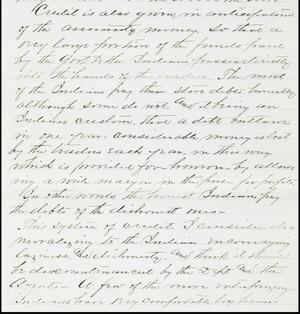 Credit is also given, in anticipation
of the annuity money so that a
very large portion of the funds paid
by the Govt to the Indians passes directly
into the hands of the traders. The most
of the Indians pay their store debts honestly
although some do not and it being an
Indian custom, that a debt outlaws
in one year considerable money is lost
by the traders each year in this way
which is provided for however by allow
in a wide margin in the for profits
In other words the honest Indians pay
the debts of the dishonest ones -
This system of credit I consider de
moralizing to the Indians encouraging
laziness and dishonesty, and think it should
be discountenanced by the Dept and the
Agents - A few of the more enterprising
Indians have very comfortable log houses